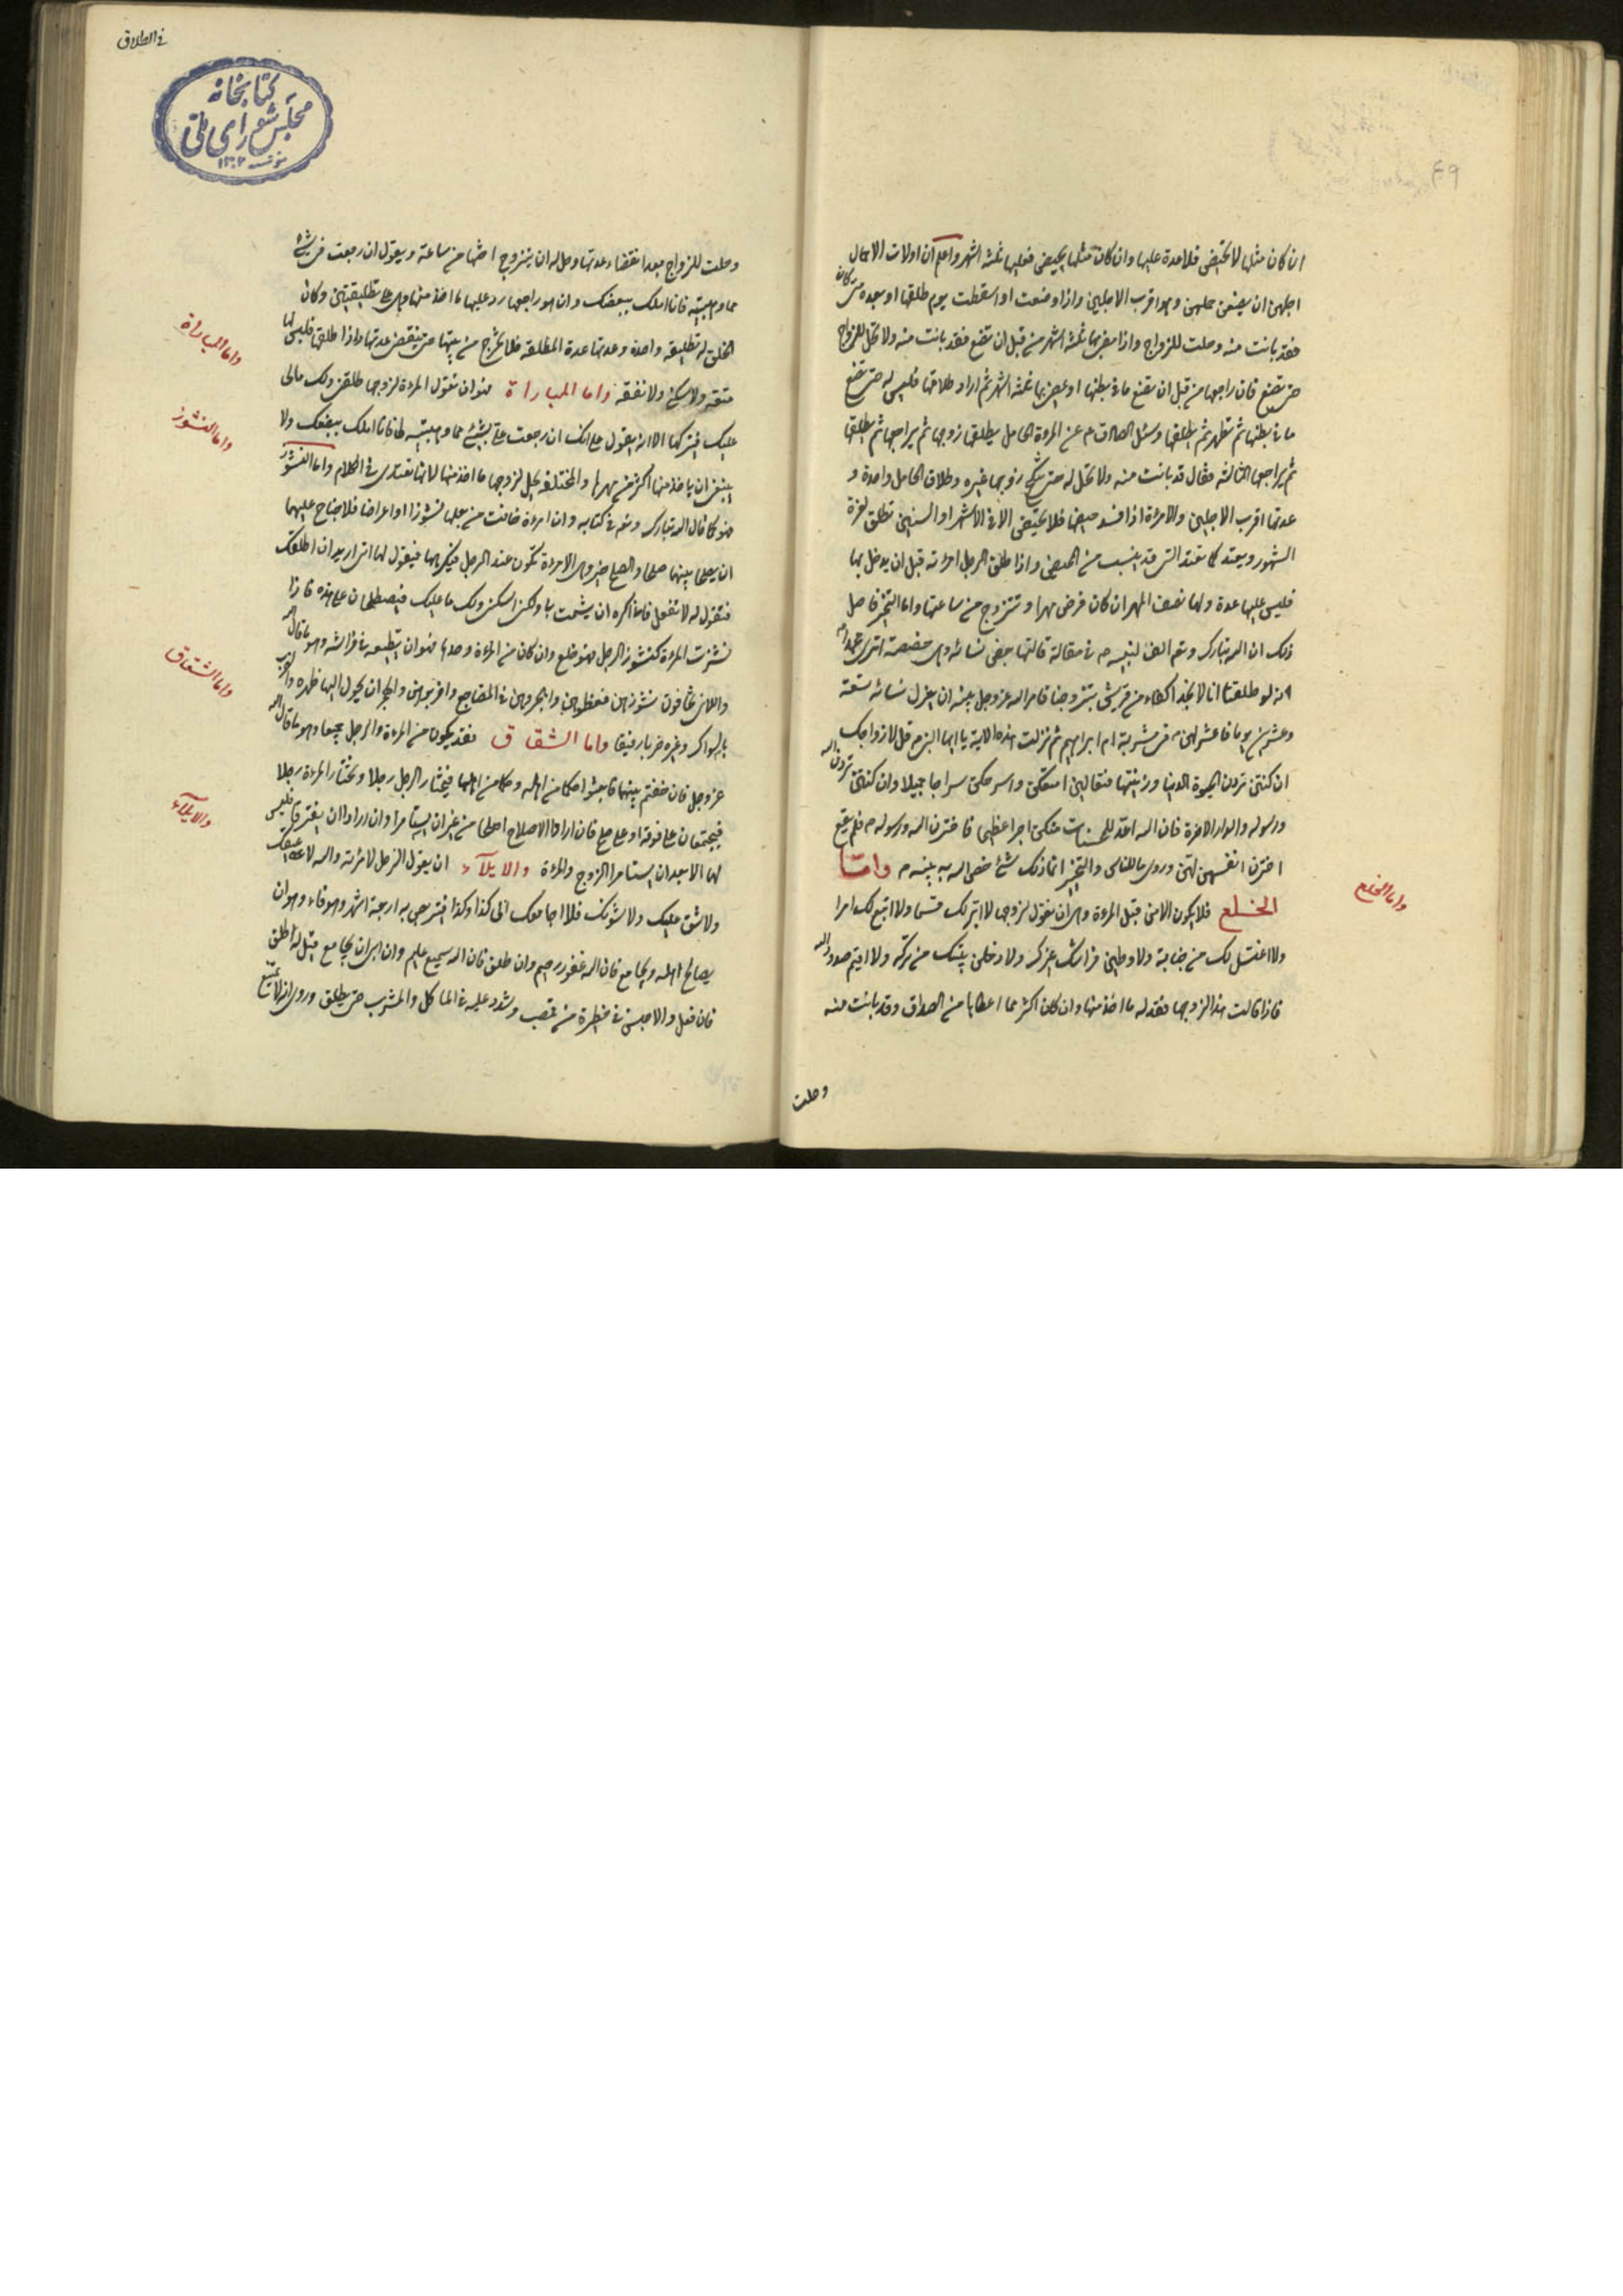 ان كان مثلها لا تحيض فلا عدة عليها وان كان مثلها يحيض فعليها ثلثة اشهر واعلم ان اولات الاحمال
اجلهن ان يضعن حملهن وهو اقرب الاجلين واذا وضعت او اسقطت يوم طلقها او بعده متى كان
فقد بانت منه وحلت للزواج واذا مضى بها ثلثة اشهر من قبل ان تضع فقد بانت منه ولا تحل للزواج
حتى تضع فان راجعها من قبل ان تضع ما فى بطنها او يمضى بها ثلثة اشهر ثم اراد طلاقها فليس له حتى تضع
ما فى بطنها ثم تطهر ثم يطلقها وسئل الصادق م عن المرءة الحامل يطلقها زوجها ثم يراجعها ثم يطلقها
ثم يراجعها الثالثه فقال قد بانت منه ولا تحل له حتى تنكح زوجها غيره وطلاق الحامل واحدة و
عدتها اقرب الاجلين والامرءة اذا فسد حيضها فلا تحيض الا فى الاشهر او السنين تطلق لغرة
الشهور ويعتد كما تعتد التى قد يئست من المحيض واذا طلق الرجل امرءته قبل ان يدخل بها
فليس عليها عدة ولها نصف المهر ان كان فرض مهرا وتتزوج من ساعتها واما التخير فاصل
ذلك ان الله تبارك وتعم انف لنبيه م فى مقالة قالتها بعض نسائه وهى حفصة اترى محمدا م
انه لو طلقنا انا لا نجد اكفاء من قريش يتزوجنا فامر الله عز وجل نبيه ان يعزل نسائه تسعة
وعشرين يوما فاعتزلهن م فى مشربة ام ابراهيم ثم نزلت هذه الاية يا ايها النبى م قل لازواجك
ان كنتن تردن الحيوة الدنيا وزينتها فتعالين امتعكن واسرحكن سراحا جميلا وان كنتن تردن الله
ورسوله والدار الاخرة فان الله اعد للمحسنات منكن اجرا عظيما فاخترن الله ورسوله م فلم يقع
اخترن انفسهن لبن وروى ما للناس والتخير انما ذلك شئ خص الله به نبيه م واما
الخلع فلا يكون الا من قبل المرءة وهى ان تقول لزوجها لا ابر لك قسما ولا اتبع لك امرا
ولا اغتسل لك من جنابة ولاوطين فراشك غيرك ولادخلن بيتك من تكره ولا اقيم حدود الله
فاذا قالت هذا لزوجها فقد له ما اخذ منها وان كان اكثر مما اعطاها من الصداق وقد بانت منه
وحلت
واما الخلع
49
فى الطلاق
كتابخانه
مجلس شوراى ملى
١٣٠٢
وحلت للزواج بعد انقضاء عدتها وحل له ان يتزوج اختها من ساعته ويقول ان رجعت فى شئ
مما وهبتيه فانا املك ببضعك وان هو راجعها رد عليها ما اخذ منها وهى على تطليقتين وكان
الخلق له تطليقة واحدة وعدتها عدة المطلقة فلا تخرج من بيتها حتى ينقضى عدتها واذا طلقها فليس لها
متعة ولا سكنى ولا نفقه واما المباراة فهو ان تقول المرءة لزوجها طلقنى ولك مالى
عليك فيتركها الا انه يقول على انك ان رجعت على بشئ مما وهبتيه لى فانا املك ببضعك ولا
ينبغى ان ياخذ منها اكثر من مهرها والمختلعة يحل لزوجها ما اخذ منها لانها تعتدى فى الكلام واما النشوز
فهو كما قال الله تبارك وتعم فى كتابه وان امرءة خافت من بعلها نشوزا او اعراضا فلا جناح عليهما
ان يصلحا بينهما صلحا والصلح خير وهى الامرءة تكون عند الرجل فيكرهها فيقول لها انى اريد ان اطلقك
فتقول له لا تفعل فانى اكره ان يشمت بى ولكن امسكنى ولك ما عليك فيصطلحان على هذه فاذا
نشزت المرءة كنشوز الرجل فهو خلع وان كان من المرءة وحدها فهو ان لاتطيعه فى فراشه وهو ما قال الله
واللاتى تخافون نشوزهن فعظوهن واهجروهن فى المضاجع واضربوهن والهجران يحول اليها ظهره والضرب
بالسواك وغيره ضربا رفيقا واما الشقاق فقد يكون من المرءة والرجل جميعا وهو ما قال الله
عز وجل فان خفتم بينهما فابعثوا حكما من اهله وحكما من اهلها فيختار الرجل رجلا وتختار المرءة رجلا
فيجتمعان على فرقة او على صلح فان ارادا الاصلاح اصلحا من غير ان يستامرا وان ارادا ان يفترقا فليس
لهما الا بعد ان يستامرا الزوج والمرءة والايلاء ان يقول الرجل لامرءته والله لاغيظنك
ولاشق عليك ولاسوئنك فلا اجامعك الى كذا وكذا فيتربص به اربعة اشهر وهو فاء وهو ان
يصالح اهله ويجامع فان الله غفور رحيم وان طلق فان الله سميع عليم وان ابى ان يجامع قيل له طلق
فان فعل والا حبس فى حظيرة من قصب وشدد عليه فى الماكل والمشرب حتى يطلق وروى انه ان امتنع
واما المباراة
واما النشوز
واما الشقاق
والايلاء